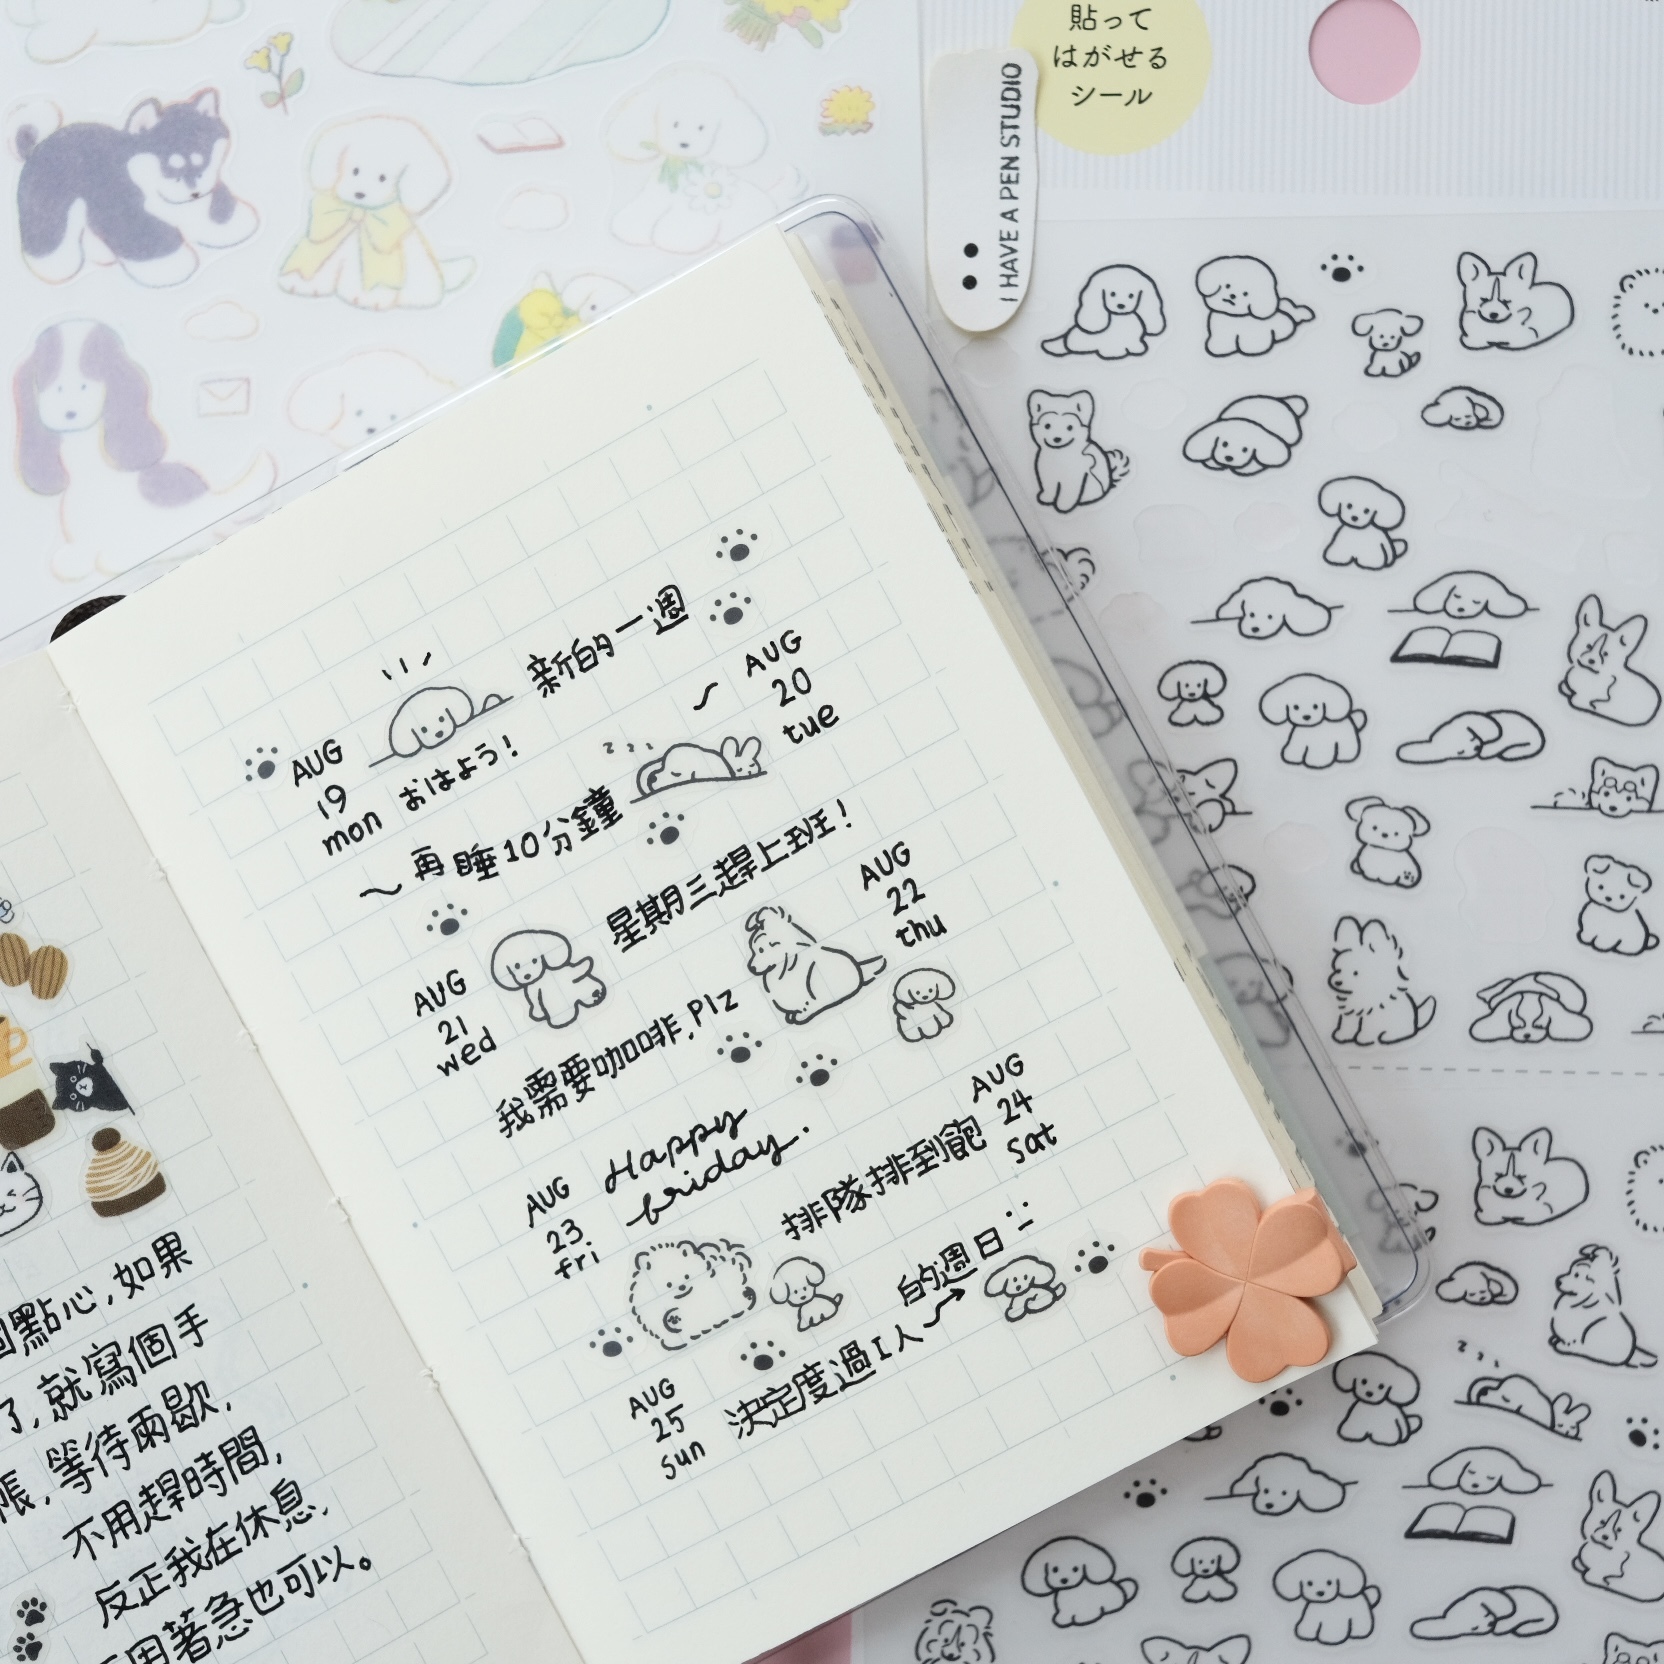 貼って
はがせる
シール
I HAVE A PEN STUDIO
新的一週
AUG
19
mon
おはよう!
AUG
20
tue
z z z
~再睡10分鐘
星期三趕上班!
AUG
21
wed
AUG
22
thu
我需要咖啡,Plz
AUG
23
fri
Happy
friday.
AUG
24
sat
排隊排到飽
的週日
AUG
25
sun
決定度過I人
個點心,如果
了,就寫個手
帳,等待兩歇,
不用趕時間,
反正我在休息,
不用著急也可以。
z z z